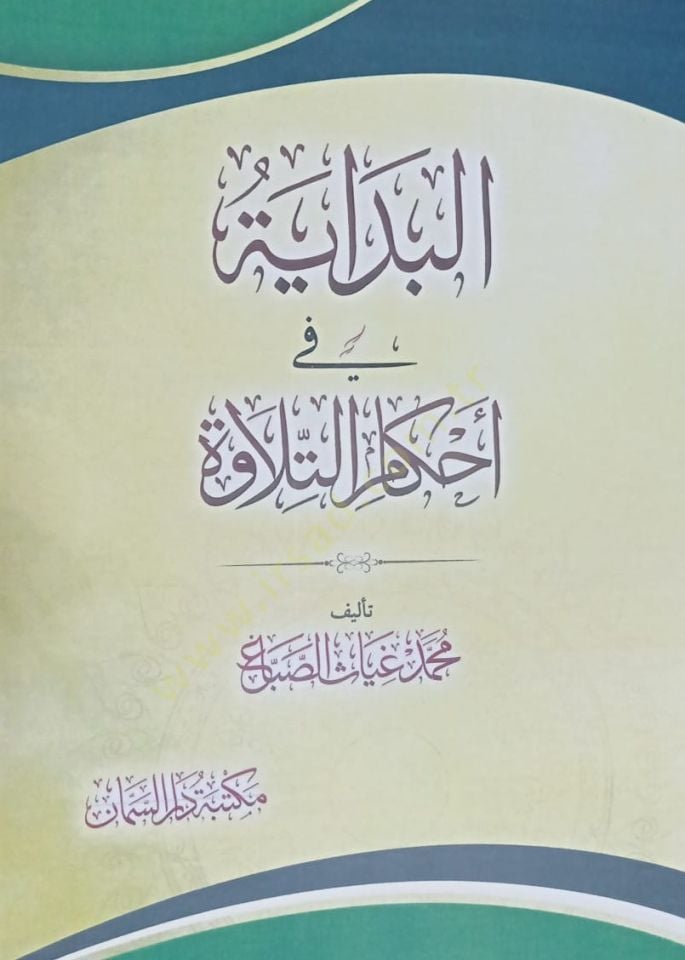 البَدَايَةُ
في
أَحْكَامِ التِّلَاوَةِ
تأليف
مُحَمَّد غِيَاث الصَّبَّاغ
مَكْتَبَة دَار السَّمَّان